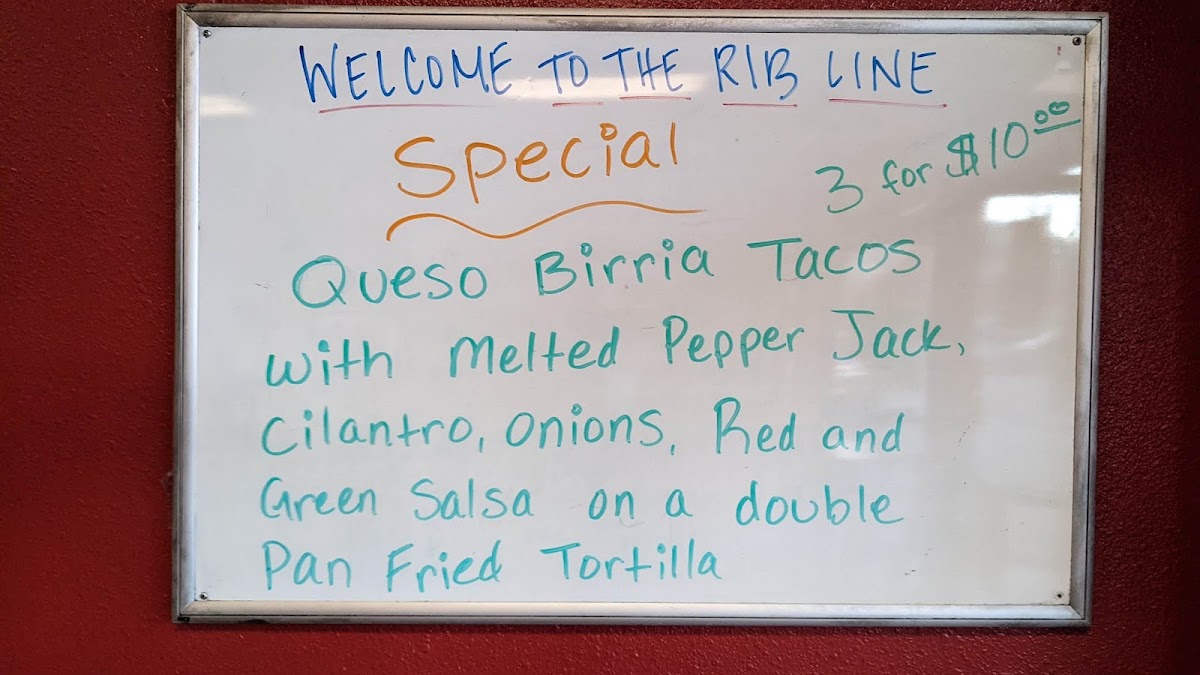 WELCOME TO THE RIB LINE
Special
3 for $10.00
Queso Birria Tacos
with Melted Pepper Jack,
Cilantro, Onions, Red and
Green Salsa on a double
Pan Fried Tortilla